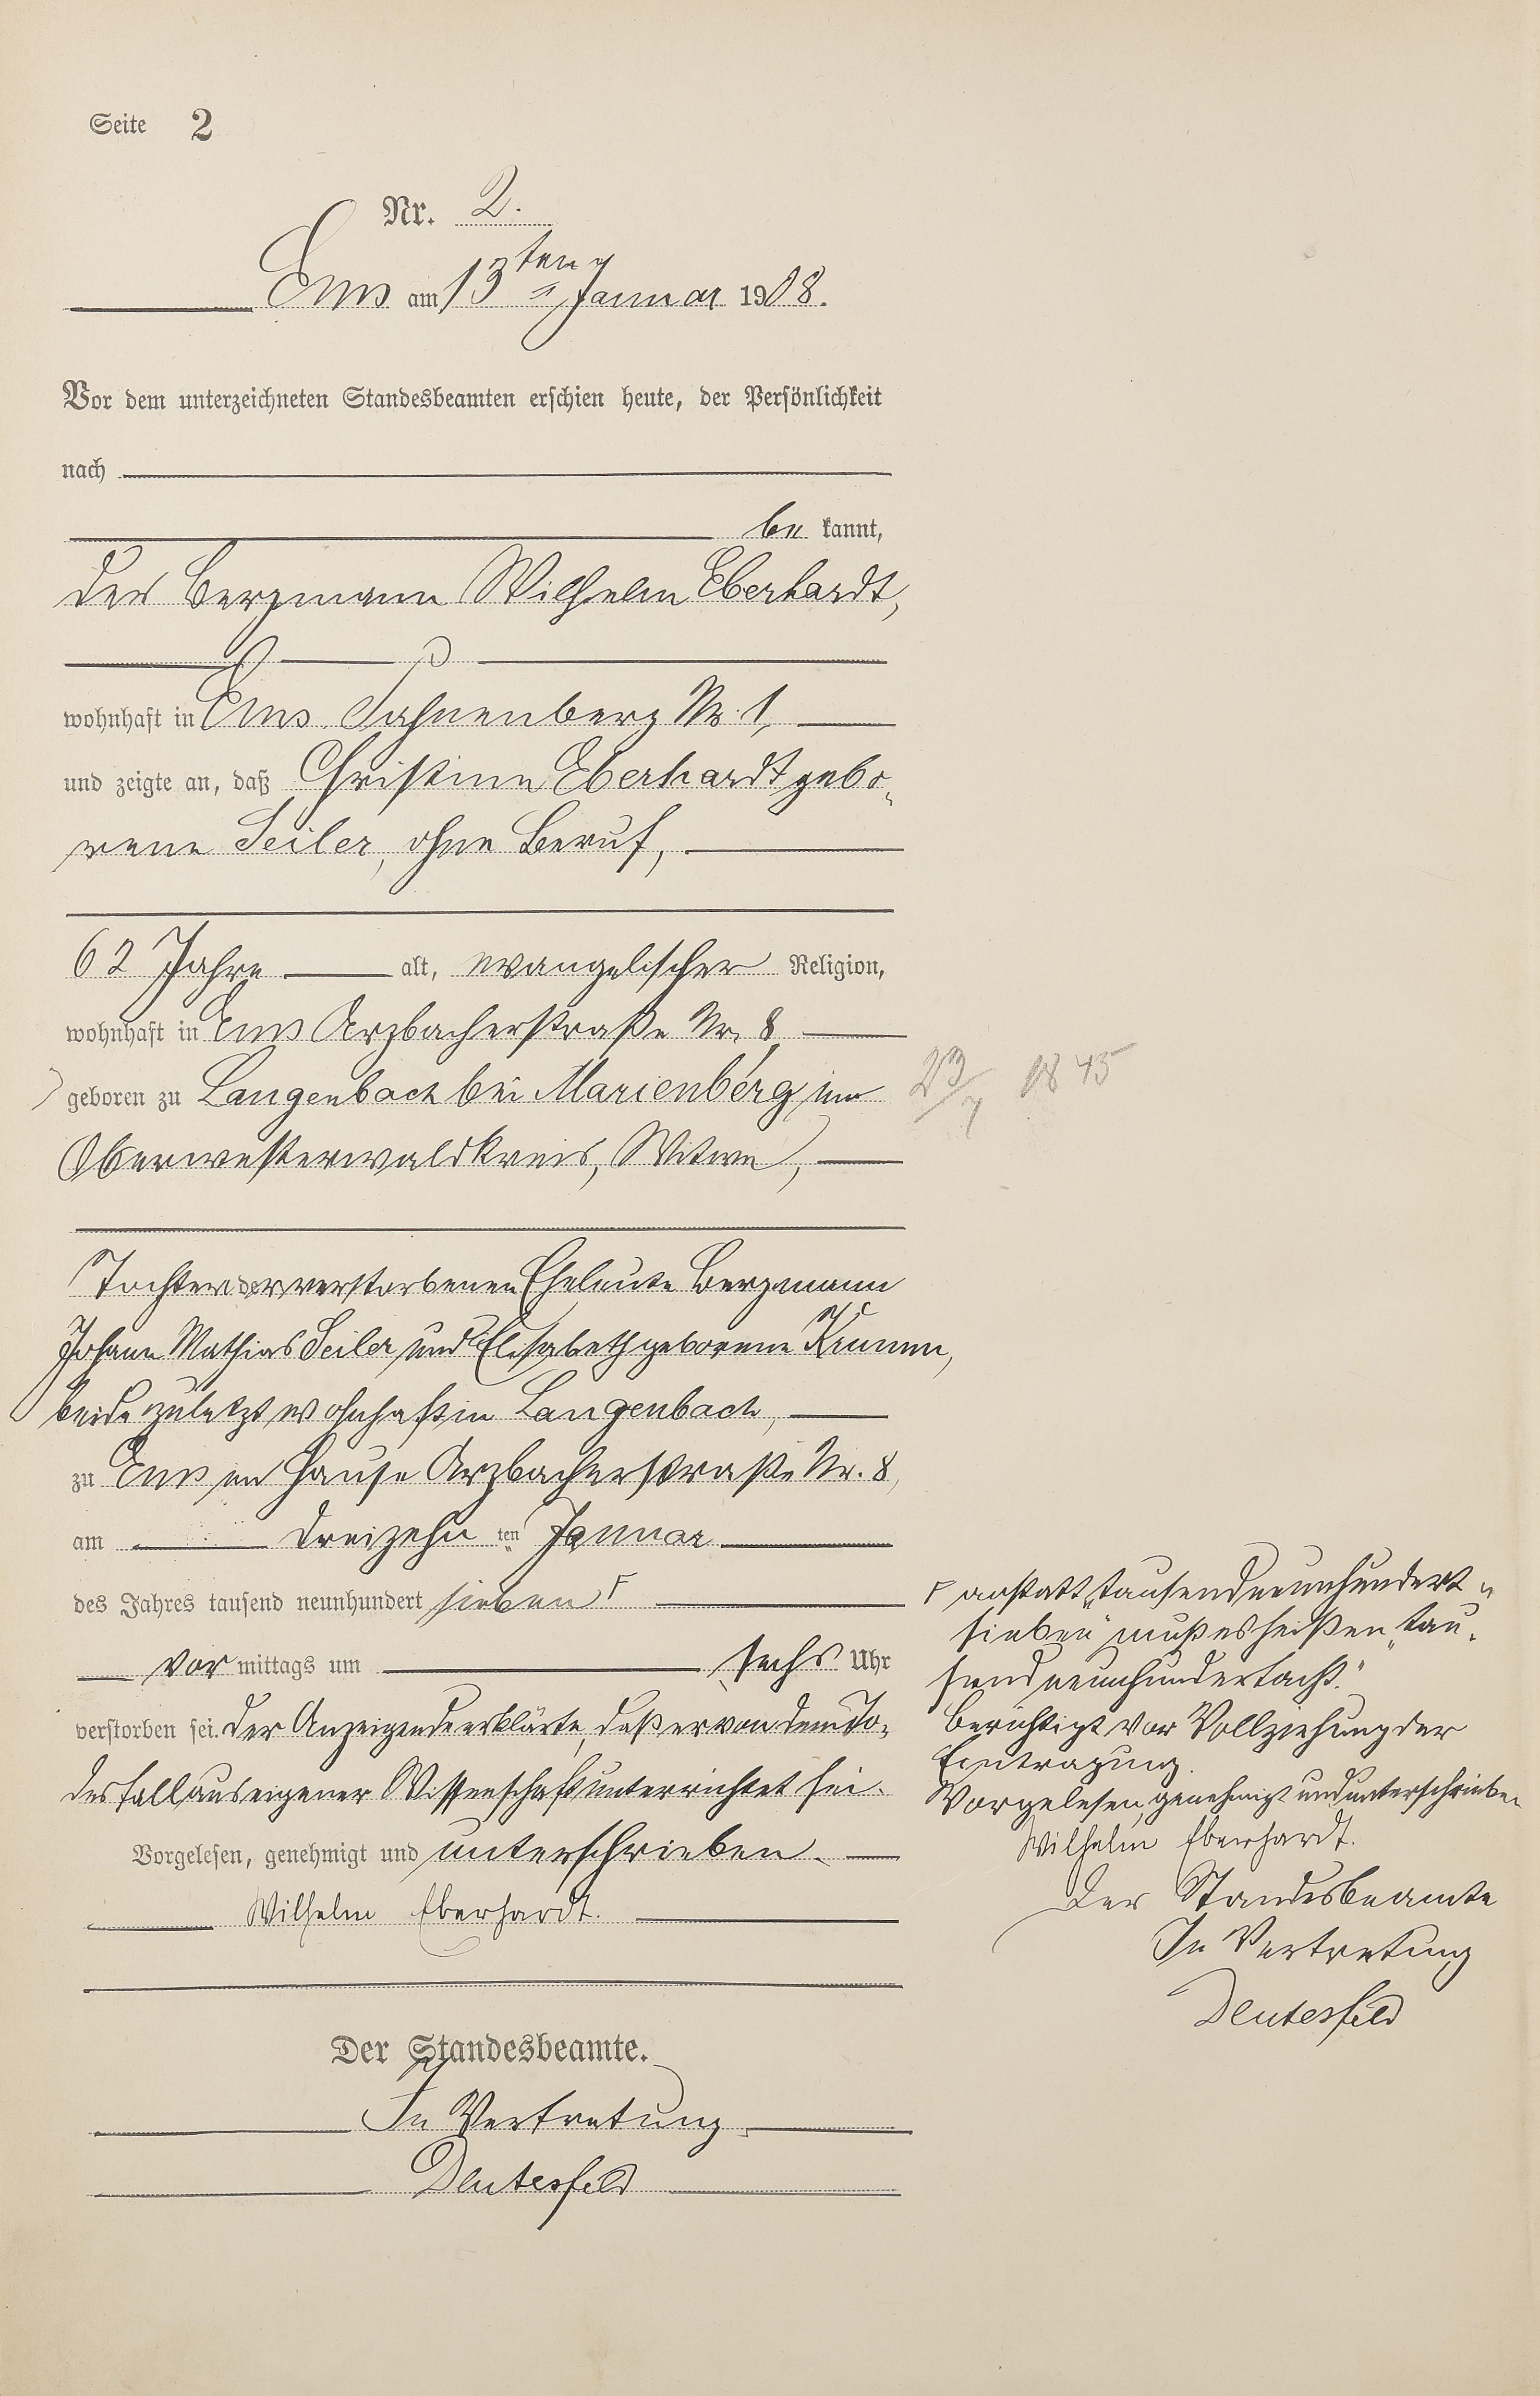 Seite 2
Nr. 2.
Ems am 13ten Januar 1908.
Vor dem unterzeichneten Standesbeamten erschien heute, der Persönlichkeit
nach
be kannt,
der Bergmann Wilhelm Eberhardt,
wohnhaft in Ems Fahnenberg Nr. 1,
und zeigte an, daß Christine Eberhardt gebo-
rene Seiler, ohne Beruf,
62 Jahre alt, evangelischer Religion,
wohnhaft in Ems Arzbacherstraße Nr. 8,
geboren zu Langenbach bei Marienberg im
23/7 1845
Oberwesterwaldkreis, Witwe,
Tochter der verstorbenen Eheleute Bergmann
Johann Mathias Seiler und Elisabeth geborene Krumm,
beide zuletzt wohnhaft in Langenbach,
zu Ems im Hause Arzbacherstraße Nr. 8,
am dreizehn ten Januar
des Jahres tausend neunhundert sieben Γ
vor mittags um sechs Uhr
verstorben sei. Der Anzeigende erklärte, daß er von dem To-
desfall aus eigener Wissenschaft unterrichtet sei.
Vorgelesen, genehmigt und unterschrieben.
Wilhelm Eberhardt.
Der Standesbeamte.
In Vertretung
Deutesfeld
Γ anstatt „tausendneunhundert-
sieben" muß es heißen „tau-
sendneunhundertacht."
Berichtigt vor Vollziehung der
Eintragung.
Vorgelesen, genehmigt und unterschrieben
Wilhelm Eberhardt.
Der Standesbeamte
In Vertretung
Deutesfeld